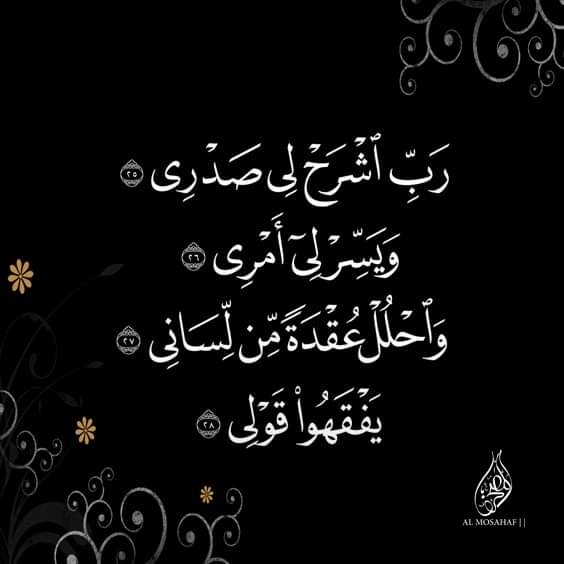 رَبِّ ٱشْرَحْ لِى صَدْرِى ٢٥
وَيَسِّرْ لِىٓ أَمْرِى ٢٦
وَٱحْلُلْ عُقْدَةً مِّن لِّسَانِى ٢٧
يَفْقَهُوا۟ قَوْلِى ٢٨
AL MOSAHAF ||